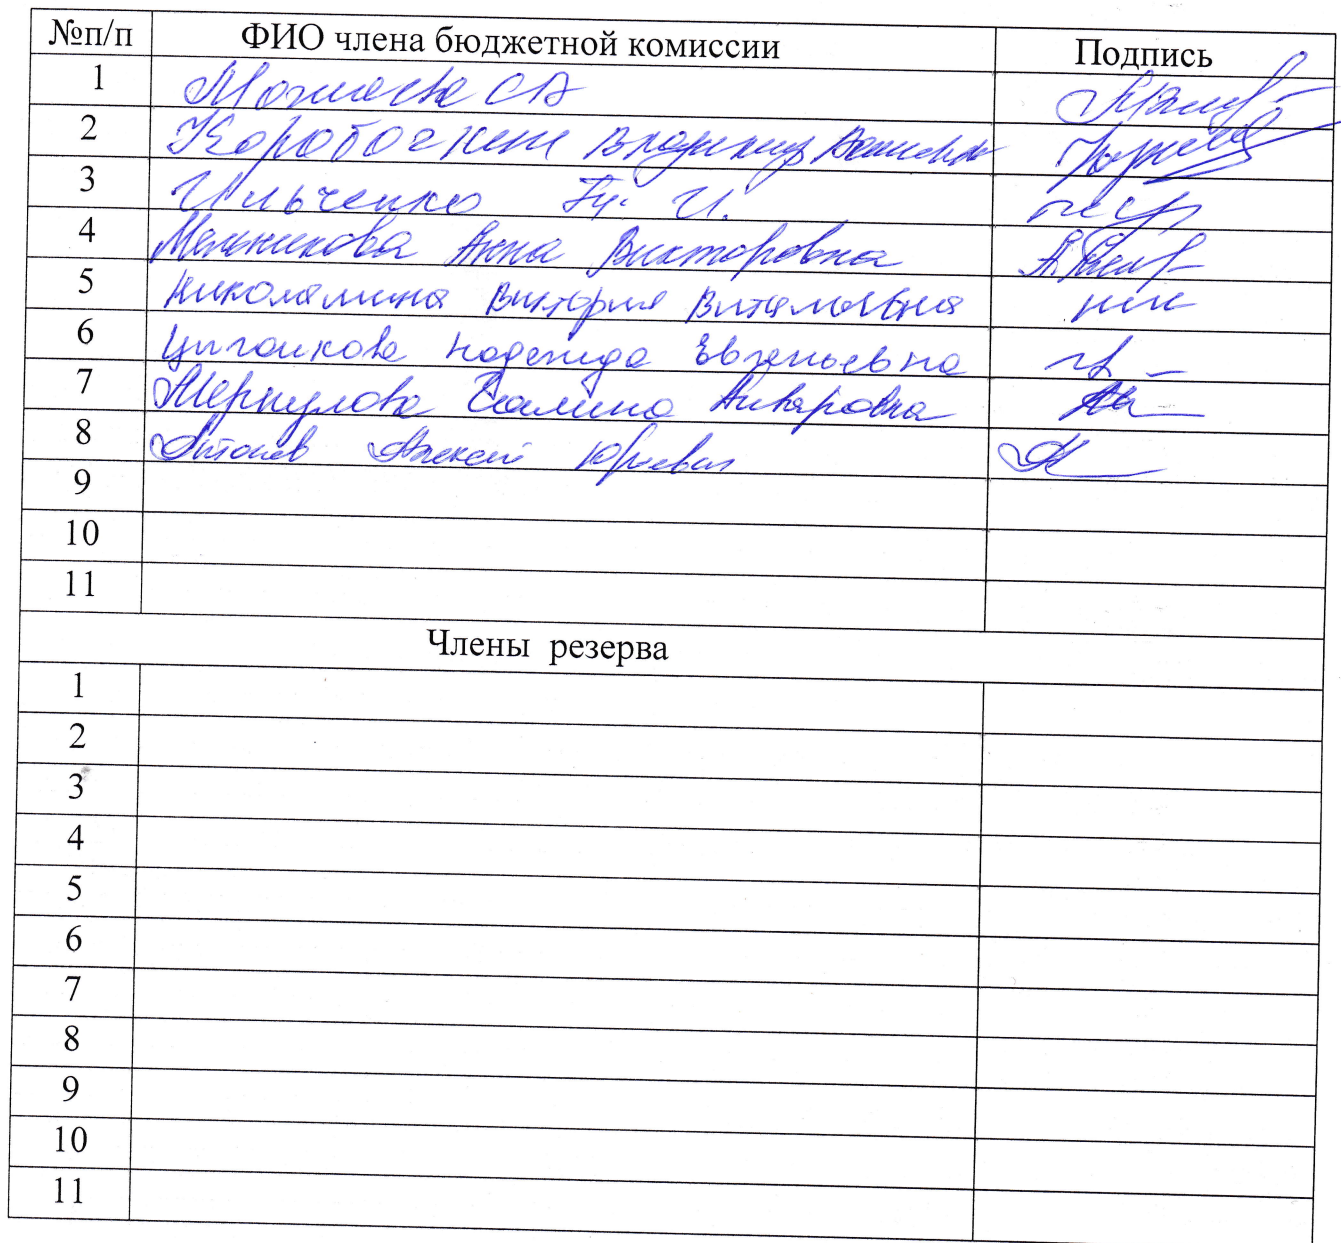 №п/п ФИО члена бюджетной комиссии Подпись
1 СА
2 Коробочкин Владимир
3 Ильченко И.
4 Мельникова Анна Викторовна
5 Николамина Виктория Витальевна
6 Цыганкова Надежда Евгеньевна
7 Меркулова Галина Анваровна
8 Антонов Алексей Юрьевич
9
10
11
Члены резерва
1
2
3
4
5
6
7
8
9
10
11